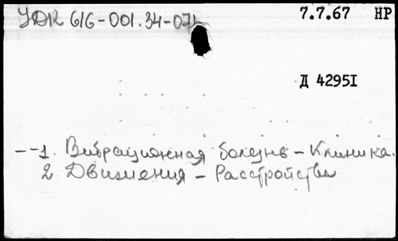 УДК 616-001.34-071
7.7.67 НР
Д 4295I
--1. Вибрационная болезнь - Клиника.
2. Движения - Расстройства